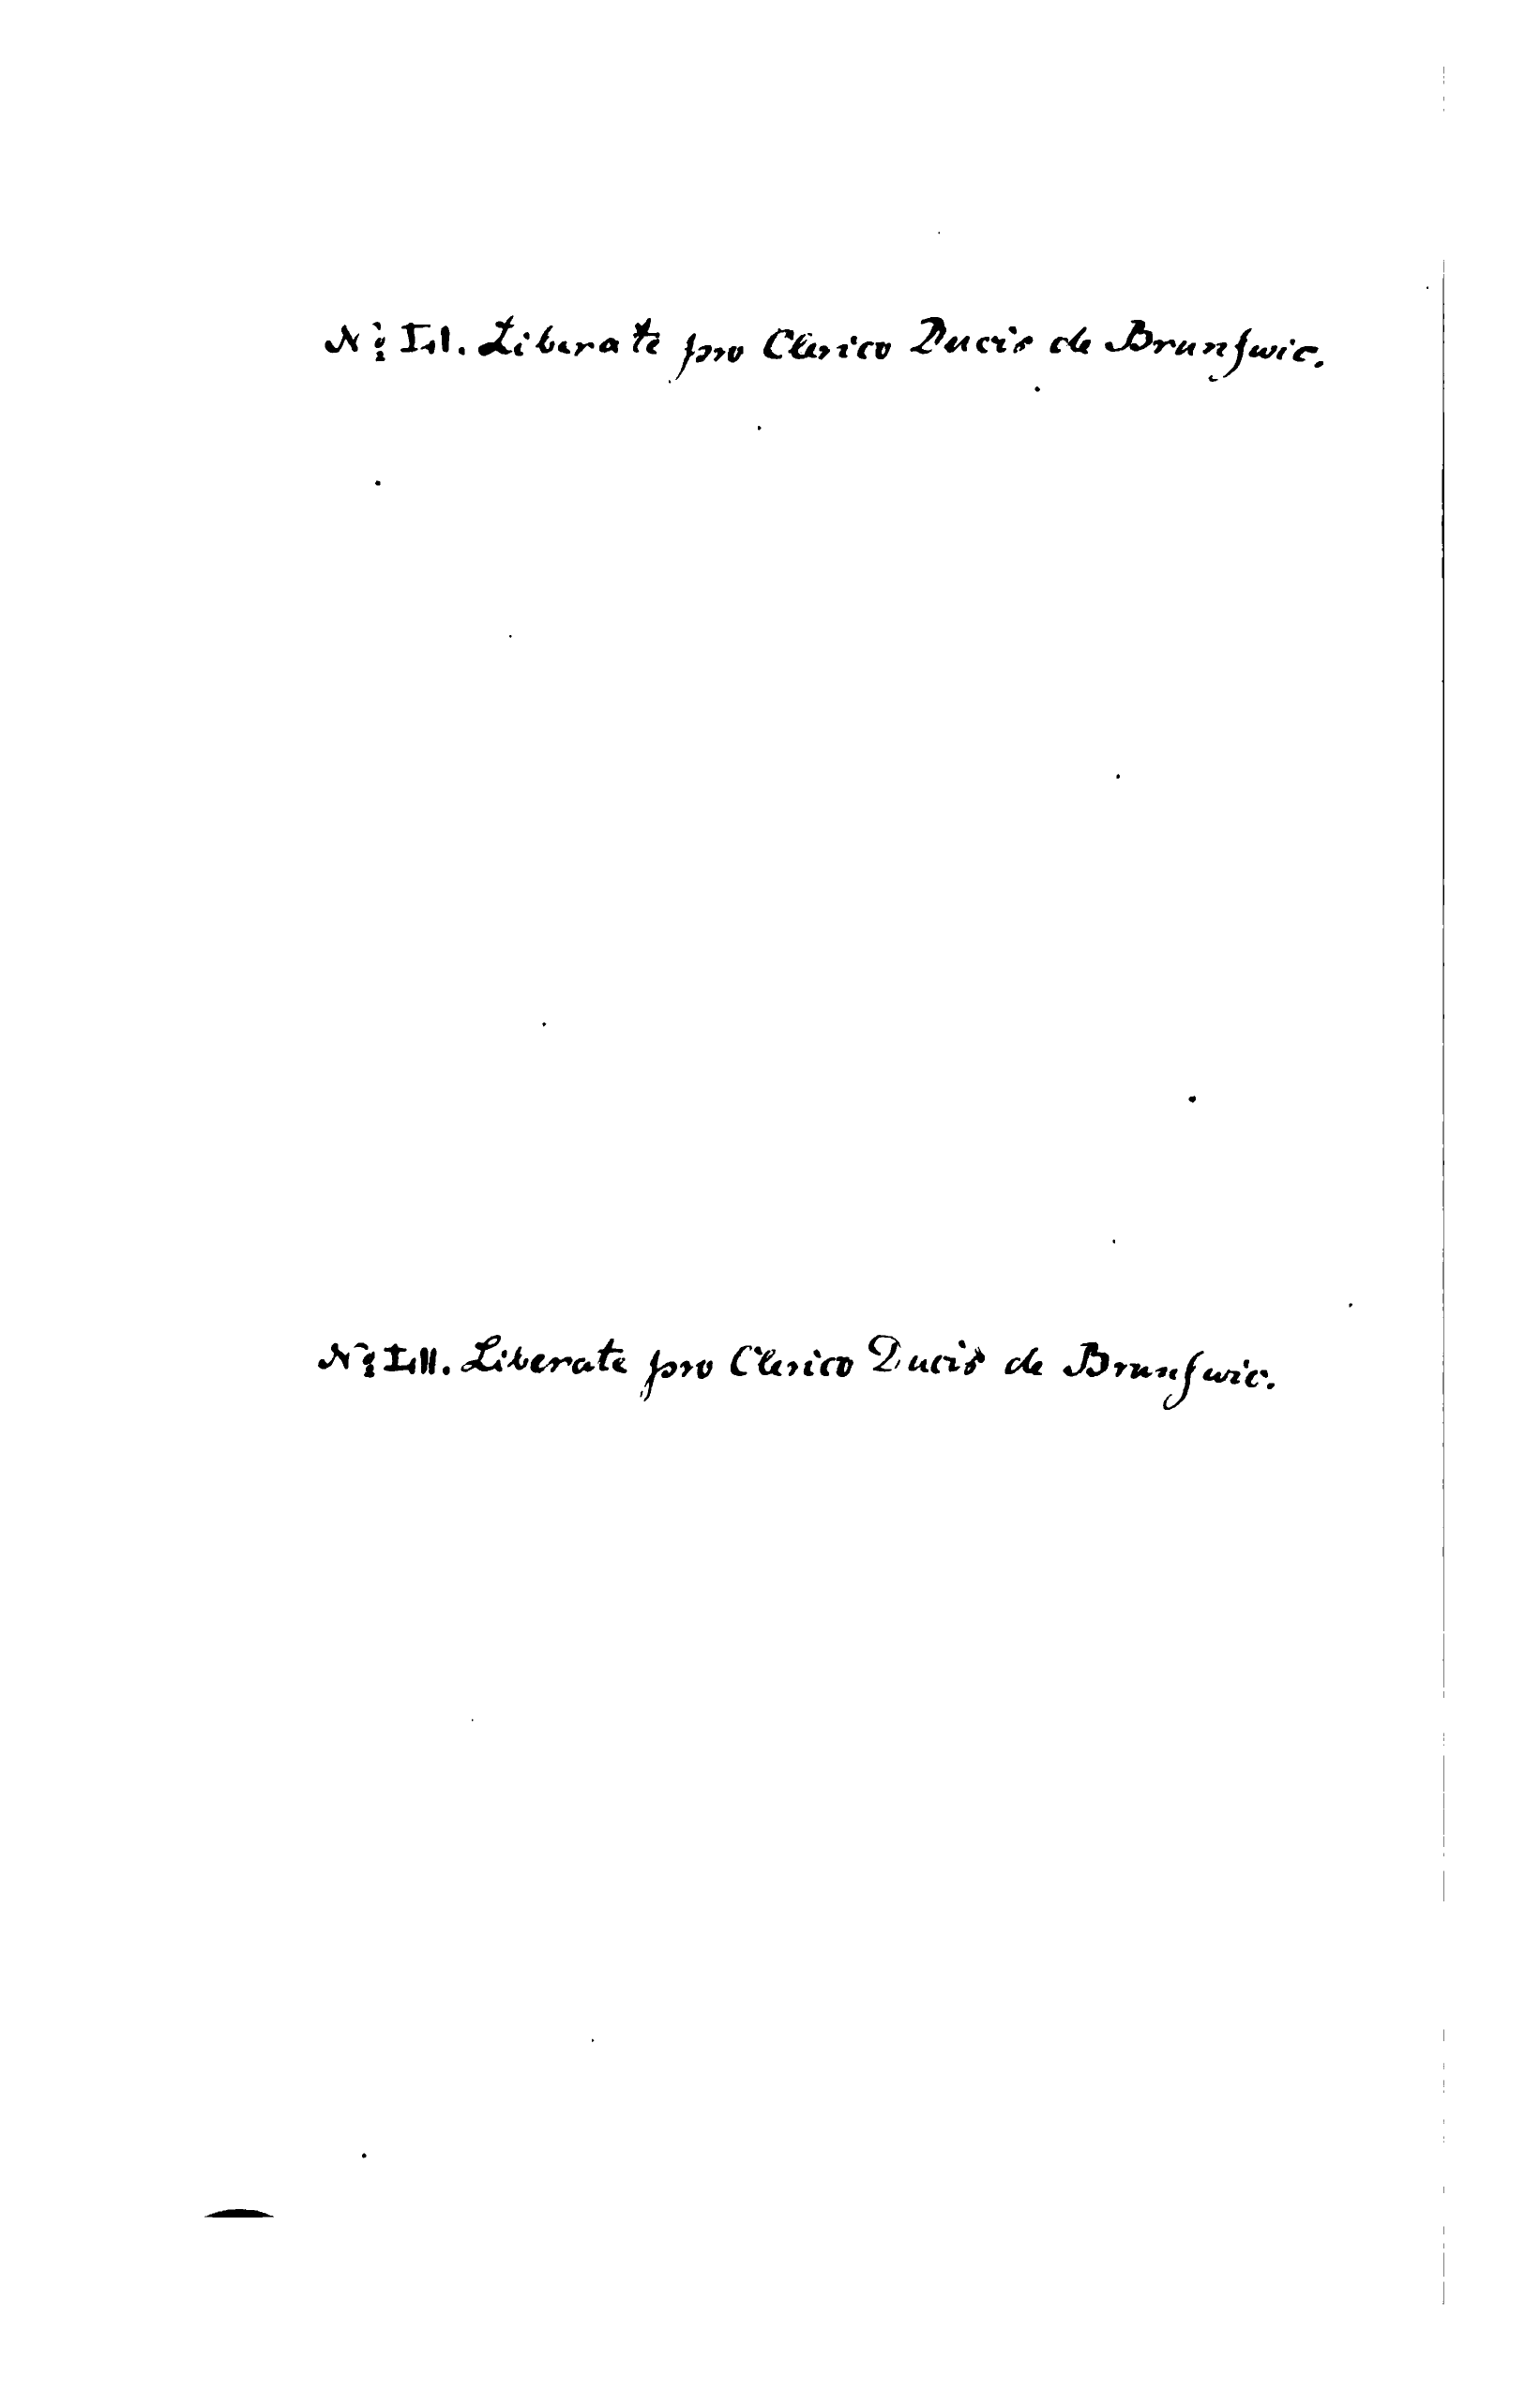 No LII. Liberate pro Clerico Ducis de Brunſwic.
No LIII. Liberate pro Clerico Ducis de Brunſwic.